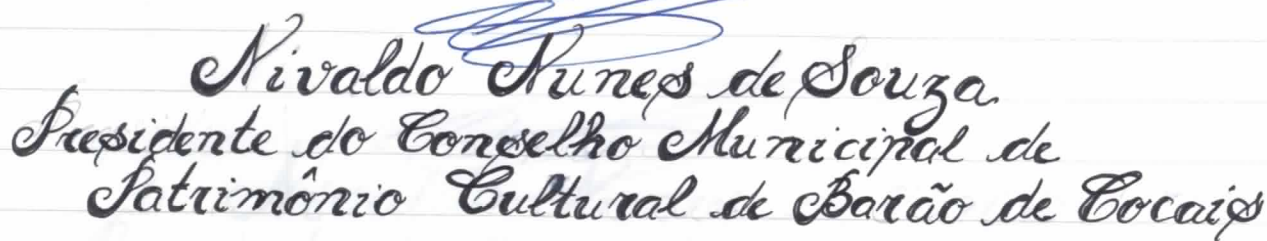 Nivaldo Nunes de Souza
Presidente do Conselho Municipal de
Patrimônio Cultural de Barão de Cocais